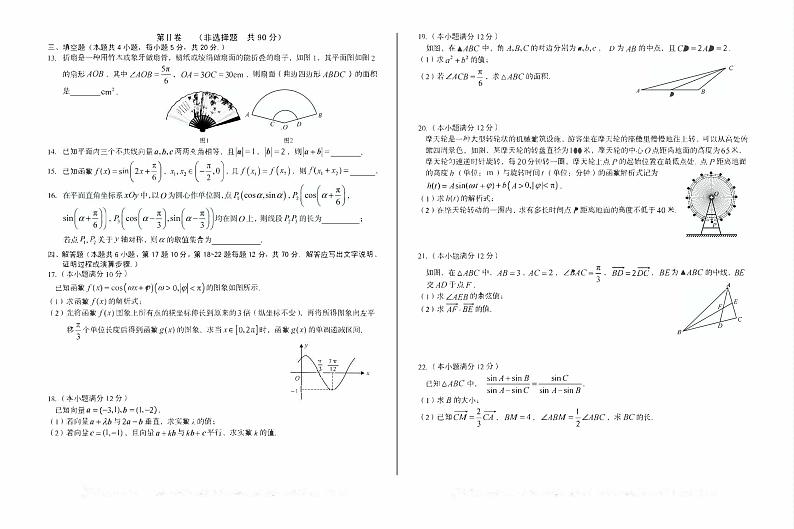 第Ⅱ卷 （非选择题 共90分）
三、填空题（本题共4小题，每小题5分，共20分．）
13. 折扇是一种用竹木或象牙做扇骨，韧纸或绫绢做扇面的能折叠的扇子，如图1，其平面图如图2
的扇形AOB，其中∠AOB=5π/6，OA=3OC=30cm，则扇面（曲边四边形ABDC）的面积
是________cm²．
A
B
C
D
O
图1
图2
14. 已知平面内三个不共线向量a,b,c两两夹角相等，且|a|=1，|b|=2，则|a+b|=________．
15. 已知函数f(x)=sin(2x+π/6)，x₁,x₂∈(-π/2,0)，且f(x₁)=f(x₂)，则f(x₁+x₂)=________．
16. 在平面直角坐标系xOy中，以O为圆心作单位圆，点P₁(cosα,sinα)，P₂(cos(α+π/6),
sin(α+π/6))，P₃(cos(α-π/3),sin(α-π/3))均在圆O上，则线段P₂P₃的长为________；
若点P₁,P₂关于y轴对称，则α的取值集合为________．
四、解答题（本题共6小题，第17题10分，第18~22题每题12分，共70分．解答应写出文字说明、
证明过程或演算步骤．）
17.（本小题满分10分）
已知函数f(x)=cos(ωx+φ)(ω>0,|φ|<π)的图象如图所示．
（1）求函数f(x)的解析式；
（2）先将函数f(x)图象上所有点的横坐标伸长到原来的3倍（纵坐标不变），再将所得图象向左平
移π/3个单位长度后得到函数g(x)的图象．求当x∈[0,2π]时，函数g(x)的单调递减区间．
y
π/3
7π/12
O
x
-1
18.（本小题满分12分）
已知向量a=(-3,1),b=(1,-2)．
（1）若向量a+λb与2a-b垂直，求实数λ的值；
（2）若向量c=(1,-1)，且向量a+kb与kb+c平行，求实数k的值．
19.（本小题满分12分）
如图，在△ABC中，角A,B,C的对边分别为a,b,c，D为AB的中点，且CD=2AD=2．
（1）求a²+b²的值；
（2）若∠ACB=π/6，求△ABC的面积．
A
D
B
C
20.（本小题满分12分）
摩天轮是一种大型转轮状的机械建筑设施，游客坐在摩天轮的座舱里慢慢地往上转，可以从高处俯
瞰四周景色，如图，某摩天轮的转盘直径为100米，摩天轮的中心O点距地面的高度为65米，
摩天轮匀速逆时针旋转，每20分钟转一圈，摩天轮上点P的起始位置在最低点处．点P距地面
的高度h（单位：m）与旋转时间t（单位：分钟）的函数解析式记为
h(t)=Asin(ωt+φ)+b(A>0,|φ|<π)．
（1）求h(t)的解析式；
（2）在摩天轮转动的一圈内，求有多长时间点P距离地面的高度不低于40米．
O
21.（本小题满分12分）
如图，在△ABC中，AB=3，AC=2，∠BAC=π/3，BD=2DC，BE为△ABC的中线，BE
交AD于点F．
（1）求∠AEB的余弦值；
（2）求AF·BE的值．
A
E
F
B
D
C
22.（本小题满分12分）
已知△ABC中，(sinA+sinB)/(sinA-sinC)=sinC/(sinA-sinB)．
（1）求B的大小；
（2）已知CM=2/3CA，BM=4，∠ABM=1/2∠ABC，求BC的长．